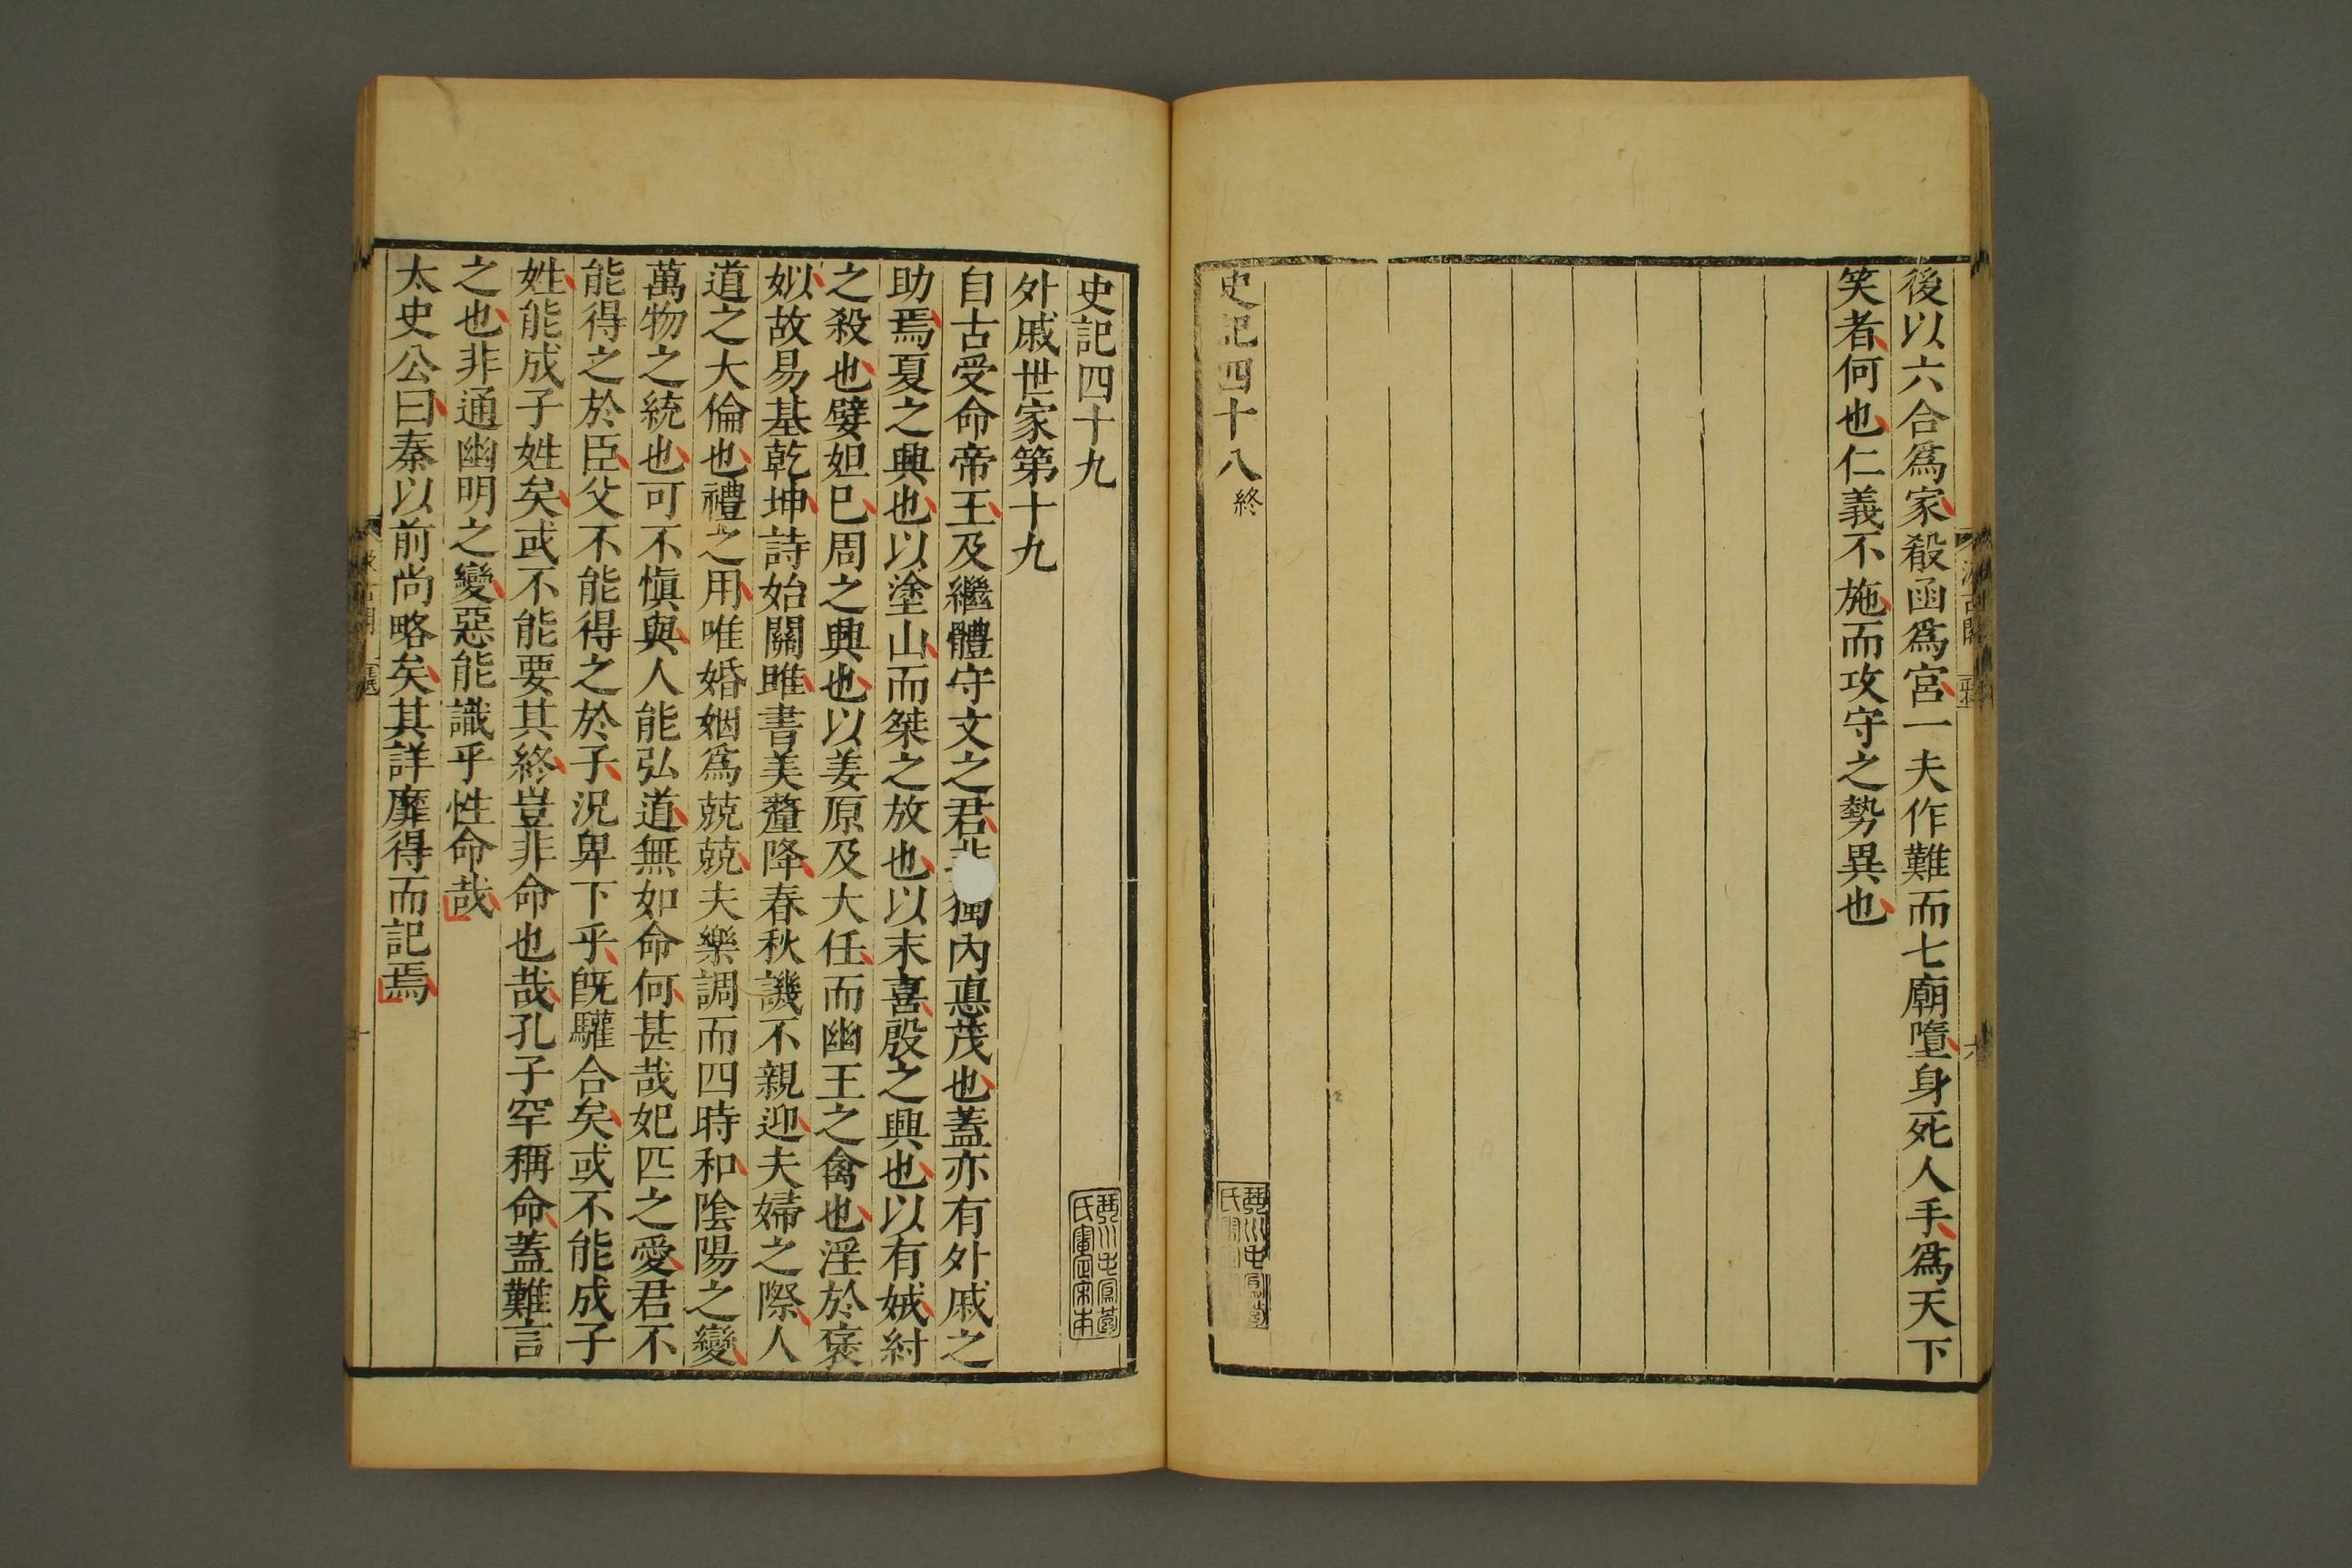 後以六合爲家殽函爲宮一夫作難而七廟墮身死人手爲天下
笑者何也仁義不施而攻守之勢異也
史記四十八終
史記四十九
外戚世家第十九
自古受命帝王及繼體守文之君獨內悳茂也蓋亦有外戚之
助焉夏之興也以塗山而桀之放也以末喜殷之興也以有娀紂
之殺也嬖妲巳周之興也以姜原及大任而幽王之禽也淫於褒
姒故易基乾坤詩始關雎書美釐降春秋譏不親迎夫婦之際人
道之大倫也禮之用唯婚姻爲兢兢夫樂調而四時和陰陽之變
萬物之統也可不愼與人能弘道無如命何甚哉妃匹之愛君不
能得之於臣父不能得之於子況卑下乎旣驩合矣或不能成子
姓能成子姓矣或不能要其終豈非命也哉孔子罕稱命蓋難言
之也非通幽明之變惡能識乎性命哉
太史公曰秦以前尚略矣其詳靡得而記焉